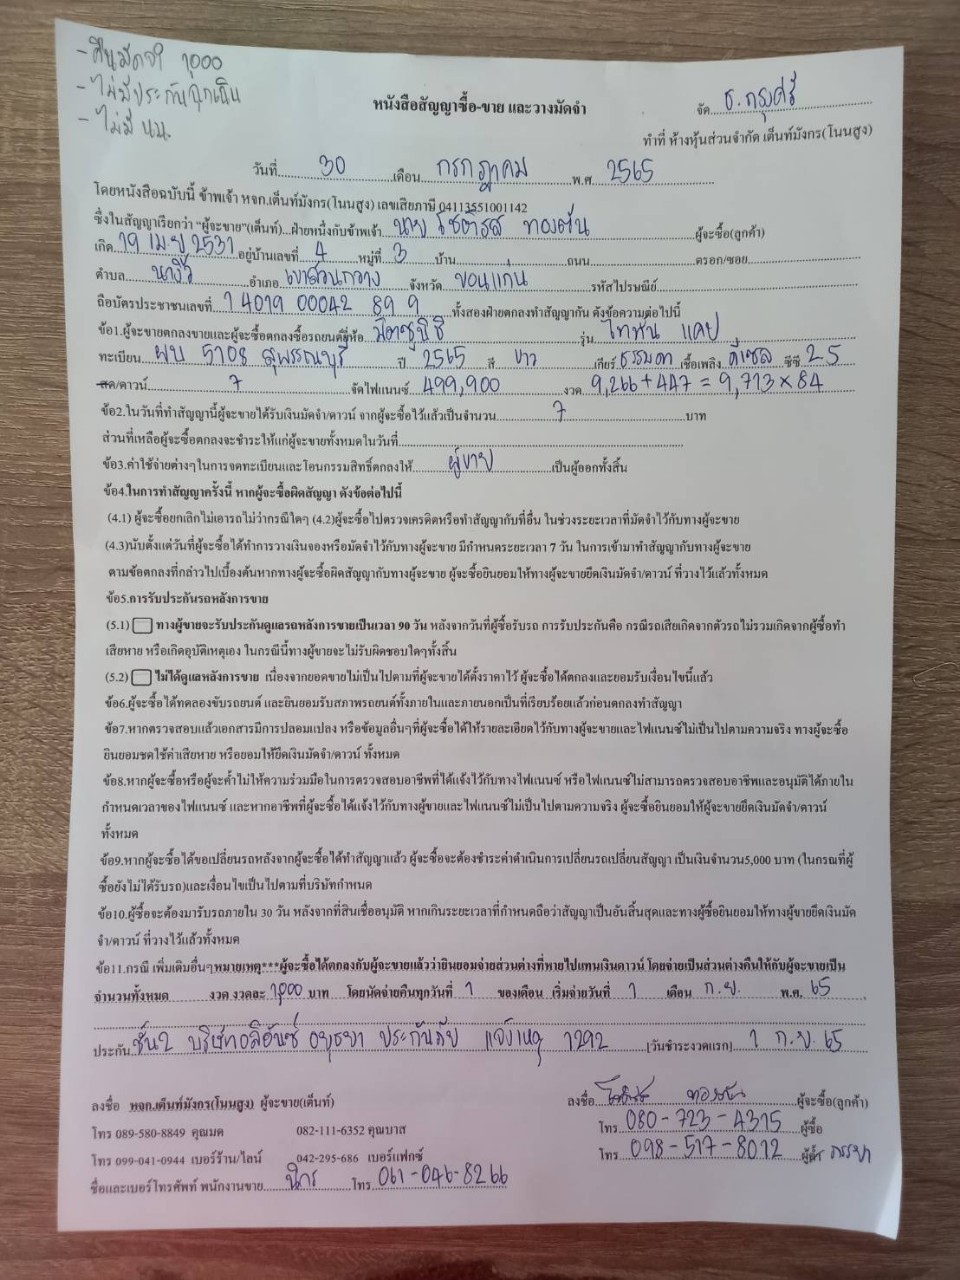 - คืนมัดจำ 1,000
- ไม่มีประกันฉุกเฉิน
- ไม่มี
หนังสือสัญญาซื้อ-ขาย และวางมัดจำ
จัด ธ.กรุงศรี
ทำที่ ห้างหุ้นส่วนจำกัด เต็นท์มังกร(โนนสูง)
วันที่ 30 เดือน กรกฎาคม พ.ศ. 2565
โดยหนังสือฉบับนี้ ข้าพเจ้า หจก.เต็นท์มังกร(โนนสูง) เลขเสียภาษี 04113551001142
ซึ่งในสัญญาเรียกว่า "ผู้จะขาย"(เต็นท์)...ฝ่ายหนึ่งกับข้าพเจ้า นาย โชติรส ทองต้น ผู้จะซื้อ(ลูกค้า)
เกิด 19 เม.ย 2531 อยู่บ้านเลขที่ 4 หมู่ที่ 3 บ้าน ถนน ตรอก/ซอย
ตำบล นางิ้ว อำเภอ เขาสวนกวาง จังหวัด ขอนแก่น รหัสไปรษณีย์
ถือบัตรประชาชนเลขที่ 1 4019 00042 89 9 ทั้งสองฝ่ายตกลงทำสัญญากัน ดังข้อความต่อไปนี้
ข้อ1.ผู้จะขายตกลงขายและผู้จะซื้อตกลงซื้อรถยนต์ยี่ห้อ มิตซูบิชิ รุ่น ไททัน แคป
ทะเบียน ผบ 5108 สุพรรณบุรี ปี 2565 สี ขาว เกียร์ ธรรมดา เชื้อเพลิง ดีเซล ซีซี 2.5
สด/ดาวน์ 7 จัดไฟแนนซ์ 499,900 งวด 9,266+447 = 9,713 x 84
ข้อ2.ในวันที่ทำสัญญานี้ผู้จะขายได้รับเงินมัดจำ/ดาวน์ จากผู้จะซื้อไว้แล้วเป็นจำนวน 7 บาท
ส่วนที่เหลือผู้จะซื้อตกลงจะชำระให้แก่ผู้จะขายทั้งหมดในวันที่
ข้อ3.ค่าใช้จ่ายต่างๆในการจดทะเบียนและโอนกรรมสิทธิ์ตกลงให้ ผู้ขาย เป็นผู้ออกทั้งสิ้น
ข้อ4.ในการทำสัญญาครั้งนี้ หากผู้จะซื้อผิดสัญญา ดังข้อต่อไปนี้
(4.1) ผู้จะซื้อยกเลิกไม่เอารถไม่ว่ากรณีใดๆ (4.2)ผู้จะซื้อไปตรวจเครดิตหรือทำสัญญากับที่อื่น ในช่วงระยะเวลาที่มัดจำไว้กับทางผู้จะขาย
(4.3)นับตั้งแต่วันที่ผู้จะซื้อได้ทำการวางเงินจองหรือมัดจำไว้กับทางผู้จะขาย มีกำหนดระยะเวลา 7 วัน ในการเข้ามาทำสัญญากับทางผู้จะขาย
ตามข้อตกลงที่กล่าวไปเบื้องต้นหากทางผู้จะซื้อผิดสัญญากับทางผู้จะขาย ผู้จะซื้อยินยอมให้ทางผู้จะขายยึดเงินมัดจำ/ดาวน์ ที่วางไว้แล้วทั้งหมด
ข้อ5.การรับประกันรถหลังการขาย
(5.1) ทางผู้ขายจะรับประกันดูแลรถหลังการขายเป็นเวลา 90 วัน หลังจากวันที่ผู้ซื้อรับรถ การรับประกันคือ กรณีรถเสียเกิดจากตัวรถไม่รวมเกิดจากผู้ซื้อทำ
เสียหาย หรือเกิดอุบัติเหตุเอง ในกรณีนี้ทางผู้ขายจะไม่รับผิดชอบใดๆทั้งสิ้น
(5.2) ไม่ได้ดูแลหลังการขาย เนื่องจากยอดขายไม่เป็นไปตามที่ผู้จะขายได้ตั้งราคาไว้ ผู้จะซื้อได้ตกลงและยอมรับเงื่อนไขนี้แล้ว
ข้อ6.ผู้จะซื้อได้ทดลองขับรถยนต์ และยินยอมรับสภาพรถยนต์ทั้งภายในและภายนอกเป็นที่เรียบร้อยแล้วก่อนตกลงทำสัญญา
ข้อ7.หากตรวจสอบแล้วเอกสารมีการปลอมแปลง หรือข้อมูลอื่นๆที่ผู้จะซื้อได้ให้รายละเอียดไว้กับทางผู้จะขายและไฟแนนซ์ไม่เป็นไปตามความจริง ทางผู้จะซื้อ
ยินยอมชดใช้ค่าเสียหาย หรือยอมให้ยึดเงินมัดจำ/ดาวน์ ทั้งหมด
ข้อ8.หากผู้จะซื้อหรือผู้จะค้ำไม่ให้ความร่วมมือในการตรวจสอบอาชีพที่ได้แจ้งไว้กับทางไฟแนนซ์ หรือไฟแนนซ์ไม่สามารถตรวจสอบอาชีพและอนุมัติได้ภายใน
กำหนดเวลาของไฟแนนซ์ และหากอาชีพที่ผู้จะซื้อได้แจ้งไว้กับทางผู้ขายและไฟแนนซ์ไม่เป็นไปตามความจริง ผู้จะซื้อยินยอมให้ผู้จะขายยึดเงินมัดจำ/ดาวน์
ทั้งหมด
ข้อ9.หากผู้จะซื้อได้ขอเปลี่ยนรถหลังจากผู้จะซื้อได้ทำสัญญาแล้ว ผู้จะซื้อจะต้องชำระค่าดำเนินการเปลี่ยนรถเปลี่ยนสัญญา เป็นเงินจำนวน5,000 บาท (ในกรณที่ผู้
ซื้อยังไม่ได้รับรถ)และเงื่อนไขเป็นไปตามที่บริษัทกำหนด
ข้อ10.ผู้ซื้อจะต้องมารับรถภายใน 30 วัน หลังจากที่สินเชื่ออนุมัติ หากเกินระยะเวลาที่กำหนดถือว่าสัญญาเป็นอันสิ้นสุดและทางผู้ซื้อยินยอมให้ทางผู้ขายยึดเงินมัด
จำ/ดาวน์ ที่วางไว้แล้วทั้งหมด
ข้อ11.กรณี เพิ่มเติมอื่นๆหมายเหตุ***ผู้จะซื้อได้ตกลงกับผู้จะขายแล้วว่ายินยอมจ่ายส่วนต่างที่หายไปแทนเงินดาวน์ โดยจ่ายเป็นส่วนต่างคืนให้กับผู้จะขายเป็น
จำนวนทั้งหมด งวด งวดละ 1,000 บาท โดยนัดจ่ายคืนทุกวันที่ 1 ของเดือน เริ่มจ่ายวันที่ 1 เดือน ก.ย. พ.ศ. 65
ประกัน ชั้น2 บริษัทอลิอันซ์ อยุธยา ประกันภัย แจ้งเหตุ 1292 [วันชำระงวดแรก] 1 ก.ย. 65
ลงชื่อ หจก.เต็นท์มังกร(โนนสูง) ผู้จะขาย(เต็นท์)
ลงชื่อ ผู้จะซื้อ(ลูกค้า)
โทร 089-580-8849 คุณมด 082-111-6352 คุณบาส
โทร 080-723-4315 ผู้ซื้อ
โทร 099-041-0944 เบอร์ร้าน/ไลน์ 042-295-686 เบอร์แฟกซ์
โทร 098-517-8012 ภรรยา
ชื่อและเบอร์โทรศัพท์ พนักงานขาย นิกร โทร 061-046-8266